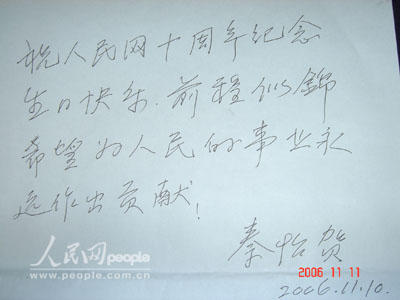 祝人民网十周年纪念
生日快乐.前程似錦
希望为人民的事业永
远作出贡献!
秦怡贺
2006.11.10.
人民网 people
www.people.com.cn
2006 11 11